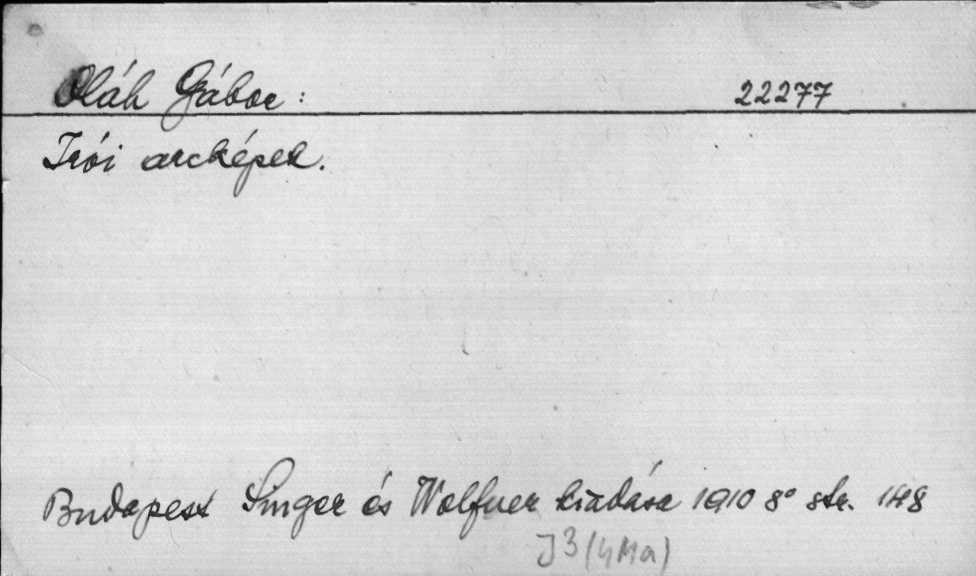 Oláh Gábor: 22277
Irói arcképek.
Budapest Singer és Wolfner kiadása 1910 8° str. 148
J3 (4Ma)